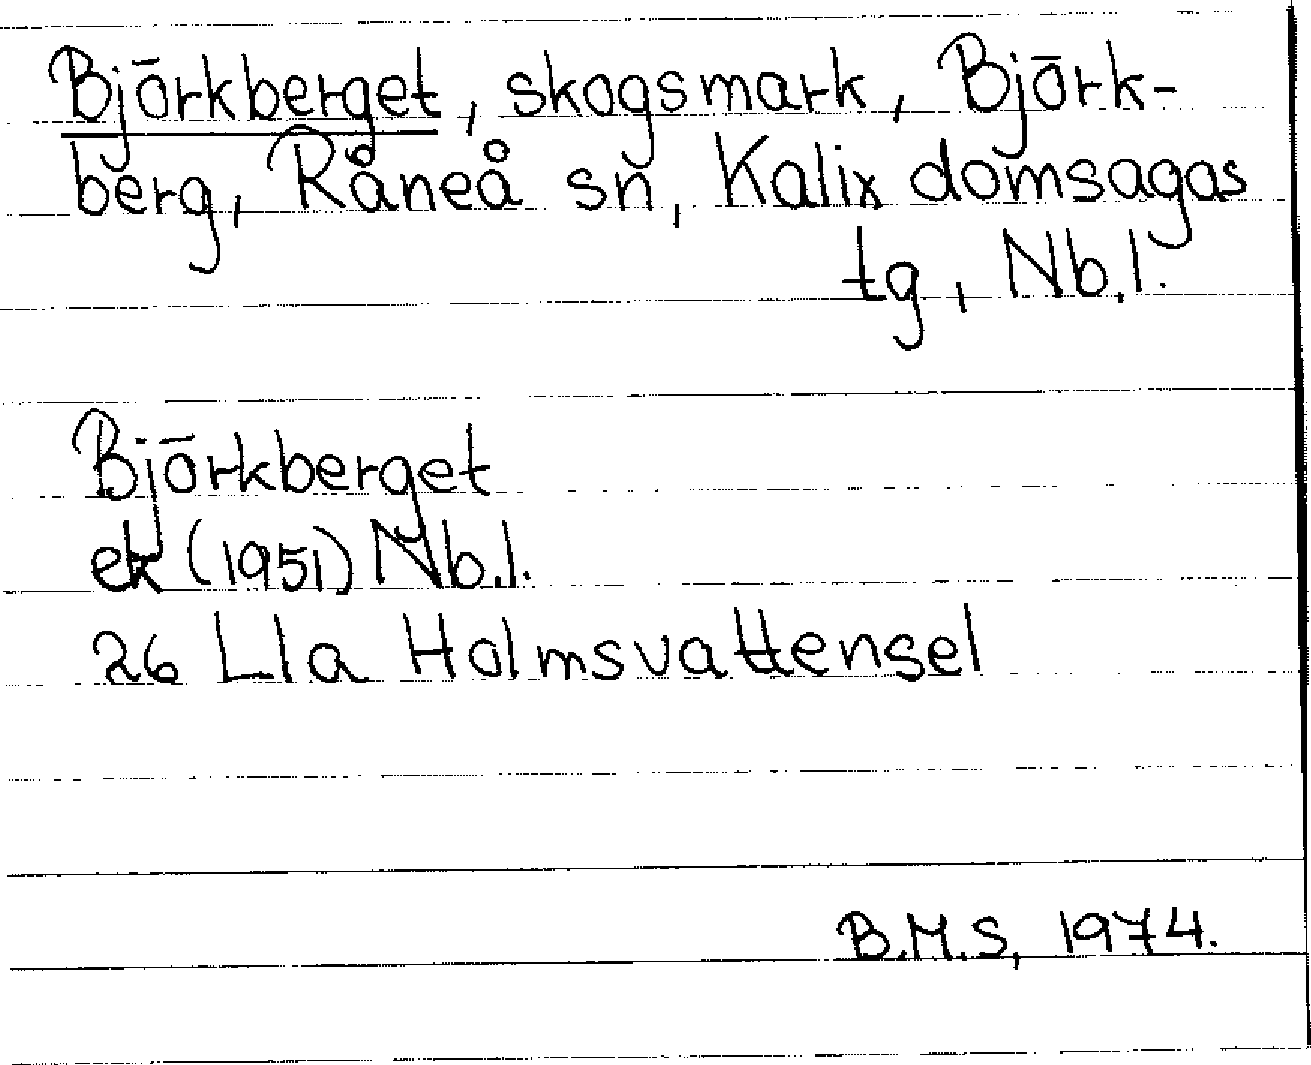 Björkberget, skogsmark, Björk-
berg, Råneå sn, Kalix domsagas
tg, Nb.l.
Björkberget
ek (1951) Nb.l.
26 Lla Holmsvattensel
B.M.S, 1974.